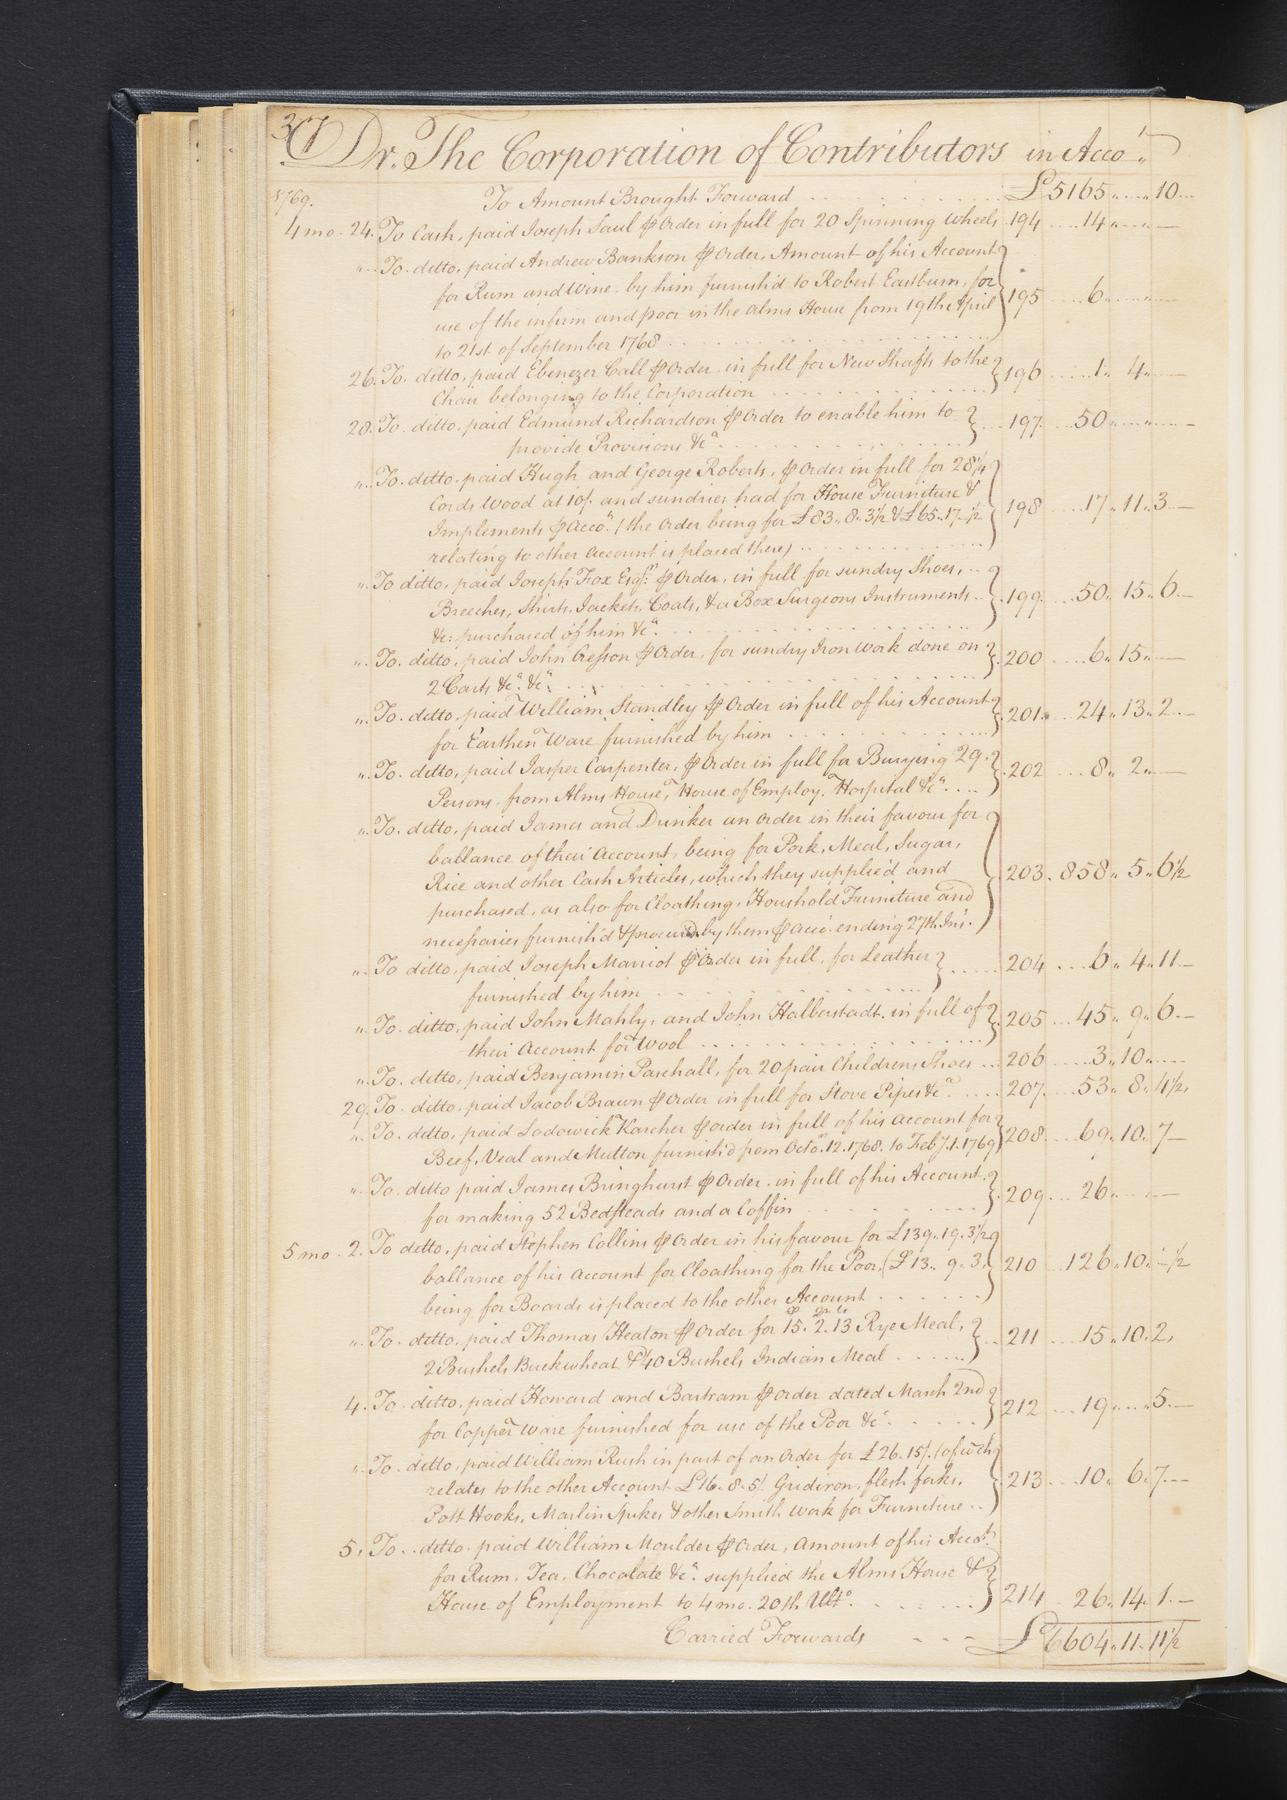 37 Dr. The Corporation of Contributors in Acco.t
1769. To Amount Brought Forward £5165 " " 10
4 mo. 24. To Cash, paid Joseph Saul ⅌ Order in full for 20 Spinning Wheels 194 14 " "
" To ditto, paid Andrew Bankson ⅌ Order, Amount of his Account
for Rum and Wine by him furnish'd to Robert Eastburn, for
use of the infirm and poor in the Alms House from 19th April 195 6 " "
to 21st. of September 1768
26. To ditto, paid Ebenezer Call ⅌ Order in full for New Shafts to the 196 1 " 4 "
Chair belonging to the Corporation
28. To ditto, paid Edmund Richardson ⅌ Order to enable him to 197 50 " "
provide Provisions &c.a
" To ditto, paid Hugh and George Roberts, ⅌ Order in full for 28 1/4
Cords Wood at 10/. and sundries had for House Furniture &
Implements ⅌ Acco.t (the Order being for £83 " 8 " 3 1/2 & £65 " 17 " 1/2 198 17 " 11 " 3
relating to other Account is placed there)
" To ditto, paid Joseph Fox Esq.r ⅌ Order, in full for sundry Shoes,
Breeches, Shirts, Jackets, Coats, & a Box Surgeons Instruments 199 50 " 15 " 6
&c: purchased of him &c.a
" To ditto, paid John Cresson ⅌ Order, for sundry Iron Work done on 200 6 " 15 "
2 Carts &c.a &c.a
" To ditto, paid William Standley ⅌ Order in full of his Account 201 24 " 13 " 2
for Earthen Ware furnished by him
" To ditto, paid Jasper Carpenter, ⅌ Order in full for Burying 29 202 8 " 2 "
Persons from Alms House, House of Employ.t Hospital &c.a
" To ditto, paid James and Drinker an Order in their favour for
ballance of their Account, being for Pork, Meal, Sugar,
Rice and other Cash Articles, which they supplied and 203 858 " 5 " 6 1/2
purchased, as also for Cloathing, Houshold Furniture and
necessaries furnish'd & procured by them ⅌ Acco.t ending 27th Ins.t
" To ditto, paid Joseph Marriot ⅌ Order in full, for Leather 204 6 " 4 " 11
furnished by him
" To ditto, paid John Mahly, and John Halberstadt, in full of 205 45 " 9 " 6
their Account for Wool
" To ditto, paid Benjamin Paschall, for 20 pair Childrens Shoes 206 3 " 10 "
29. To ditto, paid Jacob Brawn ⅌ Order in full for Stove Pipes &c.a 207 53 " 8 " 4 1/2
" To ditto, paid Lodowick Karcher ⅌ order in full of his Account for
Beef, Veal and Mutton furnish'd from Octo.r 12. 1768. to Feb.y 1. 1769 208 69 " 10 " 7
" To ditto paid James Bringhurst ⅌ Order in full of his Account, 209 26 " "
for making 52 Bedsteads and a Coffin
5 mo. 2. To ditto, paid Stephen Collins ⅌ Order in his favour for £139 " 19 " 3 1/2
ballance of his Account for Cloathing for the Poor, (£13 " 9 " 3 210 126 " 10 " 1/2
being for Boards is placed to the other Account
" To ditto, paid Thomas Heaton ⅌ Order for 15. 2. 13 Rye Meal, 211 15 " 10 " 2
2 Bushels Buckwheat & 40 Bushels Indian Meal
4. To ditto, paid Howard and Bartram ⅌ Order dated March 2nd 212 19 " " 5
for Copper Ware furnished for use of the Poor &c.a
" To ditto, paid William Rush in part of an Order for £26 " 15/. (of wch
relates to the other Account £16 " 8 " 5) Gridirons, flesh forks, 213 10 " 6 " 7
Pott Hooks, Marlin Spikes & other Smith Work for Furniture
5. To ditto, paid William Moulder ⅌ Order, Amount of his Acco.t
for Rum, Tea, Chocolate &c.a supplied the Alms House &
House of Employment to 4 mo. 20th Ult.o 214 26 " 14 " 1
Carried Forwards £6604 " 11 " 11 1/2